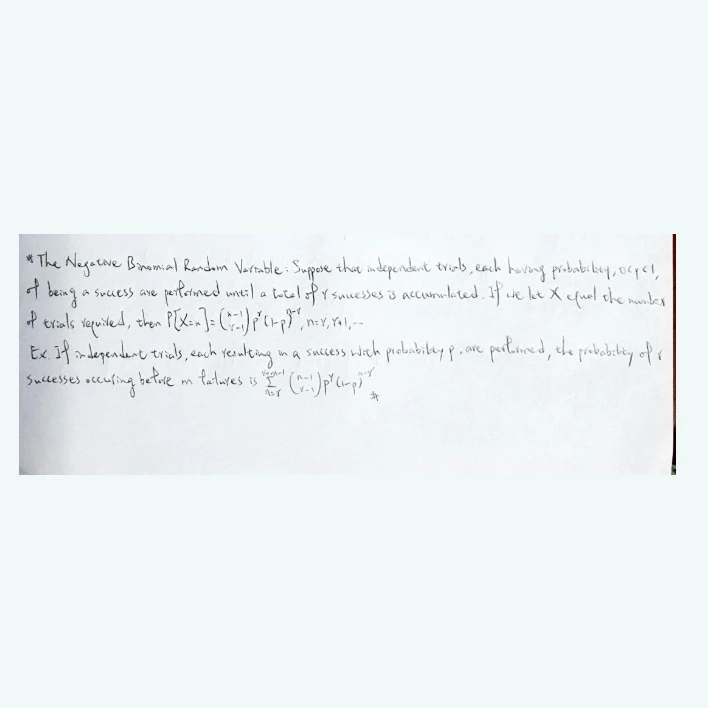 * The Negative Binomial Random Variable: Suppose that independent trials, each having probability, 0<p<1,
of being a success are performed until a total of r successes is accumulated. If we let X equal the number
of trials required, then P[X=n]=(n-1 r-1)p^r(1-p)^n-r, n=r, r+1, ...
Ex. If independent trials, each resulting in a success with probability p, are performed, the probability of r
successes occuring before m failures is Σ_{n=r}^{r+m-1} (n-1 r-1)p^r(1-p)^n-r #